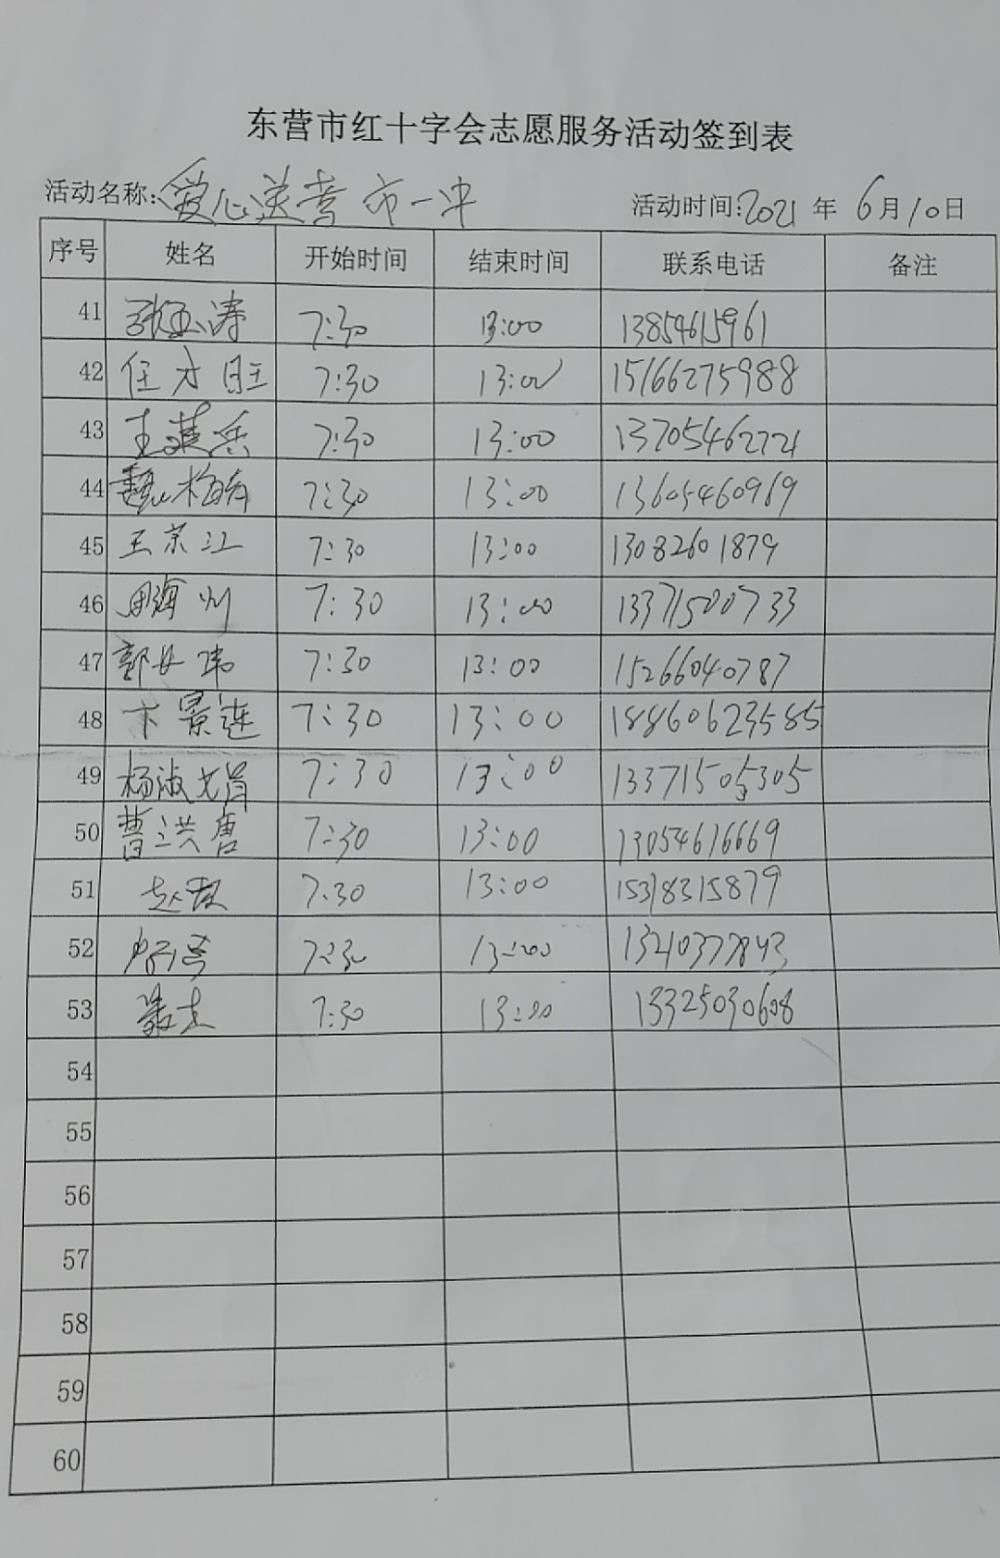 东营市红十字会志愿服务活动签到表
活动名称:爱心送考 市一中 活动时间:2021年 6月10日
序号 姓名 开始时间 结束时间 联系电话 备注
41 张玉涛 7:30 13:00 13854615961
42 任才旺 7:30 13:00 15166275988
43 王燕兵 7:30 13:00 13705462721
44 魏梅有 7:30 13:00 13605460969
45 王京江 7:30 13:00 13082601879
46 周海州 7:30 13:00 13371500733
47 郭女玮 7:30 13:00 15266040787
48 卞景莲 7:30 13:00 18860623585
49 杨淑 7:30 13:00 13371505305
50 曹洪唐 7:30 13:00 13054616669
51 赵 7:30 13:00 15318315879
52 7:30 13:00 13210377843
53 7:30 13:00 13325030608
54
55
56
57
58
59
60